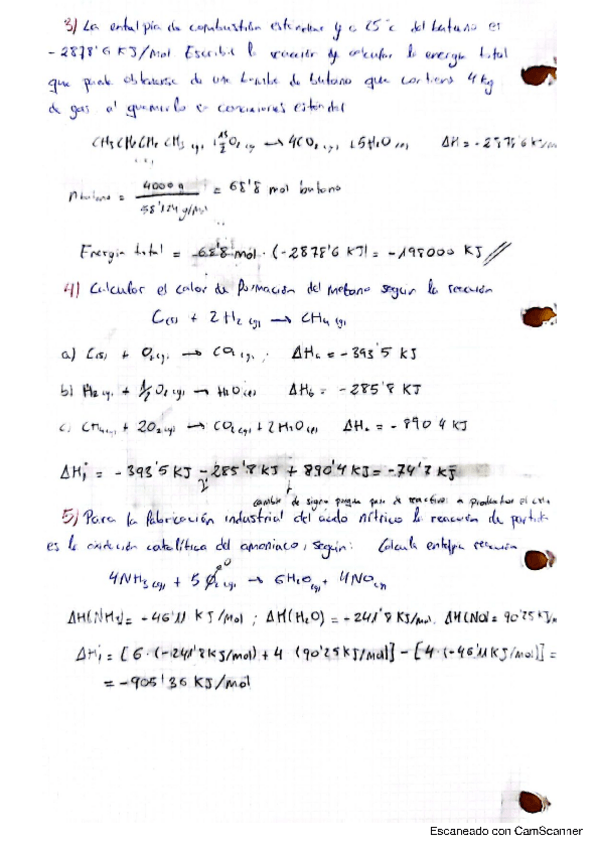 3) La entalpía de combustión estándar y a 25ºc del butano es
-2878'6 KJ/mol Escribe la reacción y calcular la energía total
que puede obtenerse de una bomba de butano que contiene 4 kg
de gas al quemarlo en condiciones estándar
CH3CH2CH2CH3 (g) + 13/2 O2 (g) → 4CO2 (g) + 5H2O (l) ΔH = -2878'6 KJ/mol
n butano = 4000 g / 58'124 g/mol = 68'8 mol butano
Energía total = 68'8 mol · (-2878'6 KJ) = -198000 KJ //
4) Calcular el calor de formación del metano según la reacción
C(s) + 2H2 (g) → CH4 (g)
a) C(s) + O2 (g) → CO2 (g) ; ΔHa = -393'5 KJ
b) H2 (g) + 1/2 O2 (g) → H2O (l) ΔHb = -285'8 KJ
c) CH4 (g) + 2O2 (g) → CO2 (g) + 2H2O (l) ΔHc = -890'4 KJ
ΔH = -393'5 KJ - 2 285'8 KJ + 890'4 KJ = -74'7 KJ
cambio de signo porque pasa de reactivo a producto
5) Para la fabricación industrial del ácido nítrico la reacción de partida
es la oxidación catalítica del amoniaco, según: Calcula entalpía reacción
4NH3 (g) + 5 O2 (g) → 6H2O (g) + 4NO (g)
0
ΔH(NH3) = -46'11 KJ/mol ; ΔH(H2O) = -241'8 KJ/mol. ΔH(NO) = 90'25 KJ/m
ΔH = [6 · (-241'8 KJ/mol) + 4 (90'25 KJ/mol)] - [4 · (-46'11 KJ/mol)] =
= -905'36 KJ/mol
Escaneado con CamScanner